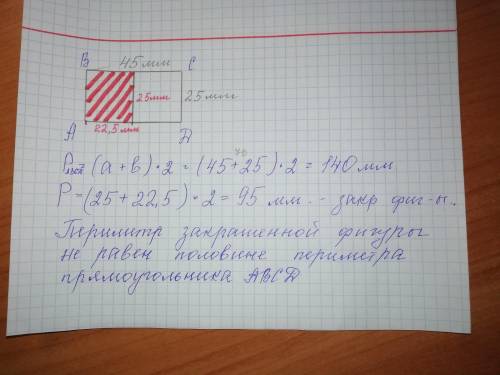 В 45мм С
25мм 25мм
А 22,5 мм D
70
P (a + b) · 2 = (45+25) · 2 = 140 мм
P = (25 + 22,5) · 2 = 95 мм - закр фиг-ы.
Периметр закрашенной фигуры
не равен половине периметра
прямоугольника ABCD